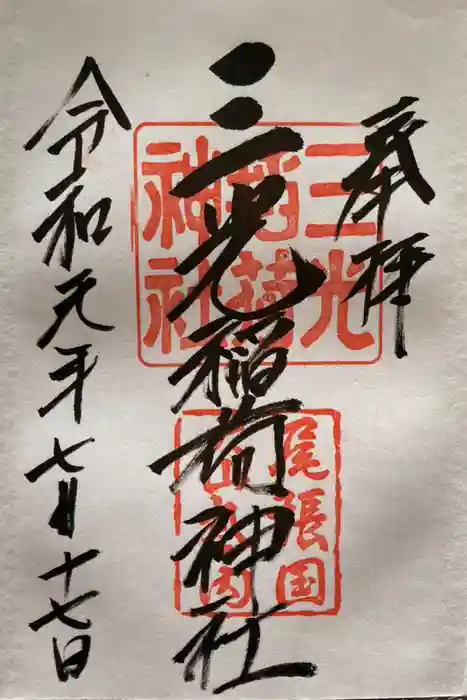 奉拝
三光稲荷神社
三光稲荷神社
尾張国
令和元年七月十七日